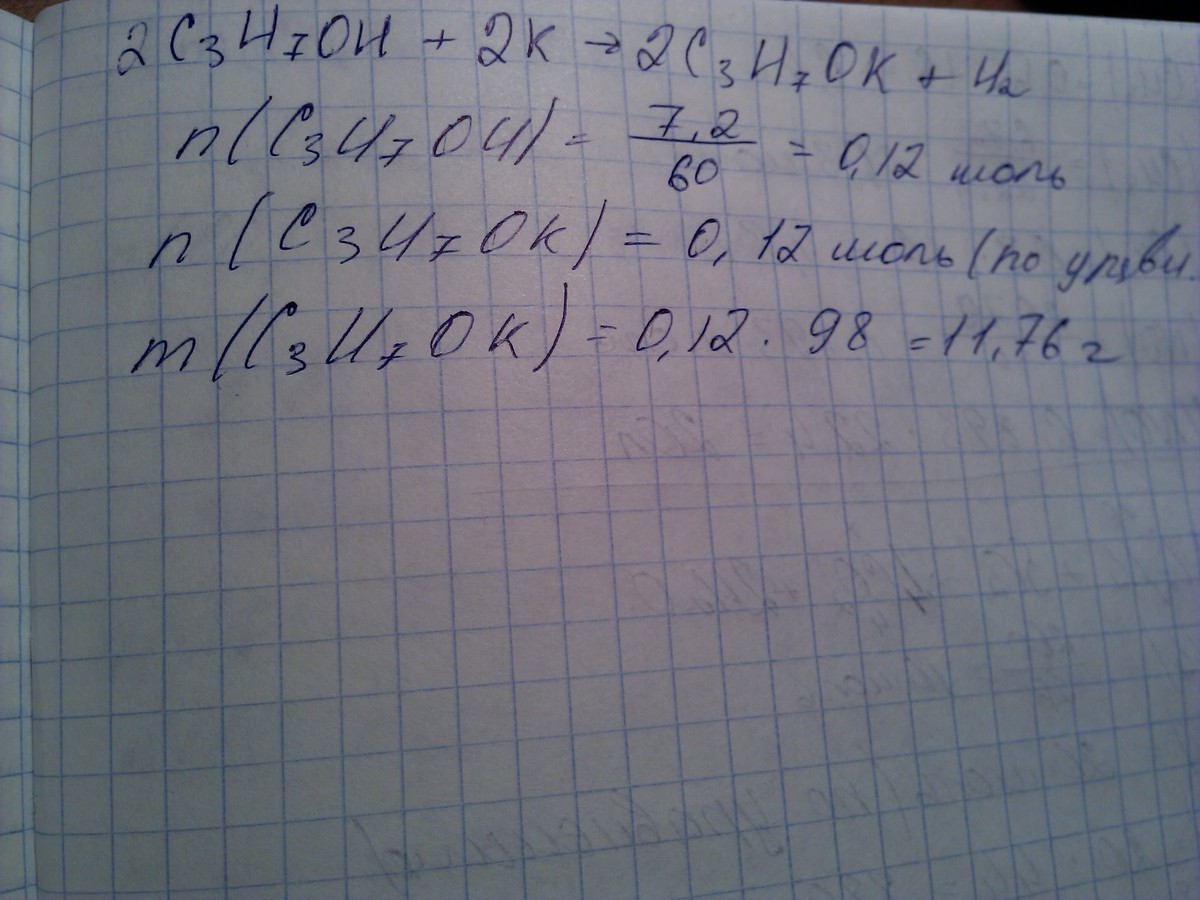 2C₃H₇OH + 2K → 2C₃H₇OK + H₂
n(C₃H₇OH) = 7,2/60 = 0,12 моль
n(C₃H₇OK) = 0,12 моль (по
m(C₃H₇OK) = 0,12 · 98 = 11,76 г